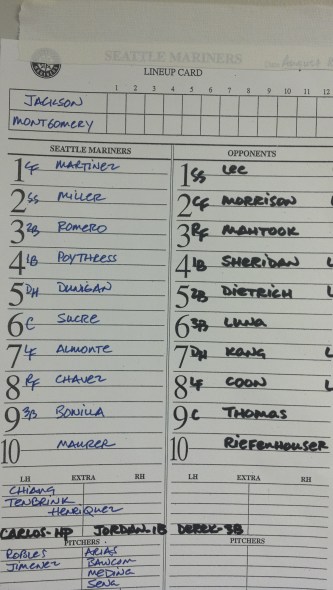 SEATTLE MARINERS
LINEUP CARD
1 2 3 4 5 6 7 8 9 10 11 12
JACKSON
MONTGOMERY
SEATTLE MARINERS
1 CF MARTINEZ
2 SS MILLER
3 2B ROMERO
4 1B POYTHRESS
5 DH DUNIGAN
6 C SUCRE
7 LF ALMONTE
8 RF CHAVEZ
9 3B BONILLA
10 MAURER
OPPONENTS
1 SS LEE
2 CF MORRISON L
3 RF MAHTOOK
4 1B SHERIDAN L
5 2B DIETRICH L
6 3B LUNA
7 DH KANG L
8 LF COON L
9 C THOMAS
10 RIEFENHAUSER
LH EXTRA RH
CHIANG
TENBRINK
HENRIQUEZ
LH EXTRA RH
CARLOS-HP JORDAN-1B DEREK-3B
PITCHERS
ROBLES ARIAS
JIMENEZ BAWCOM
MEDINA
SENA
PITCHERS